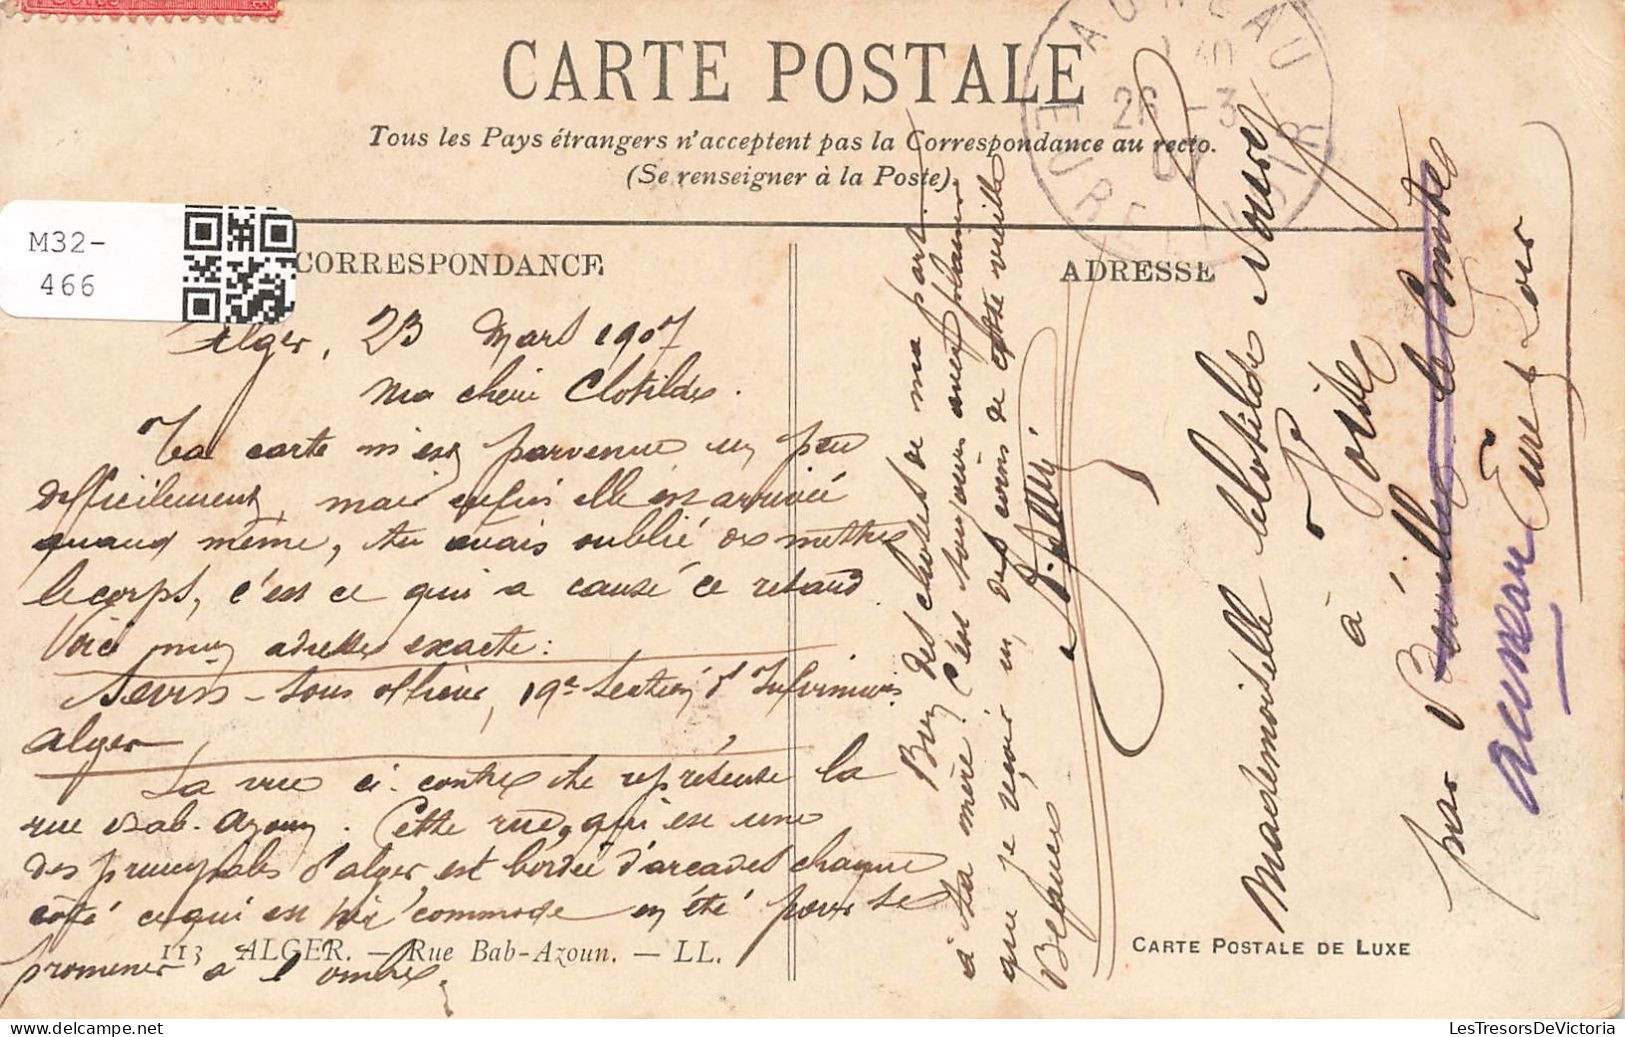 CARTE POSTALE
Tous les Pays étrangers n'acceptent pas la Correspondance au recto.
(Se renseigner à la Poste).
M32-
466
CORRESPONDANCE
ADRESSE
Alger, 23 Mars 1907
Ma chérie Clotilde.
Ta carte m'est parvenue un peu
difficilement, mais enfin elle est arrivée
quand même, tu avais oublié de mettre
le corps, c'est ce qui a causé ce retard.
Voici mon adresse exacte:
Sevin - sous officier, 19e Section d'Infirmiers
Alger
La vue ci-contre te représente la
rue Bab-Azoun. Cette rue, qui est une
des principales d'Alger, est bordée d'arcades chaque
côté ce qui est très commode en été pour se
promener à l'ombre.
Bien des choses de ma part
à ta mère. C'est toujours avec plaisir
que je reçois un des coins de cette vieille
Beauce
Mademoiselle Clotilde
à
par Baville le Comte
Auneau
Eure & Loir
AUNEAU
26 -3
07
EURE
113 ALGER. — Rue Bab-Azoun. — LL.
CARTE POSTALE DE LUXE
LesTresorsDeVictoria